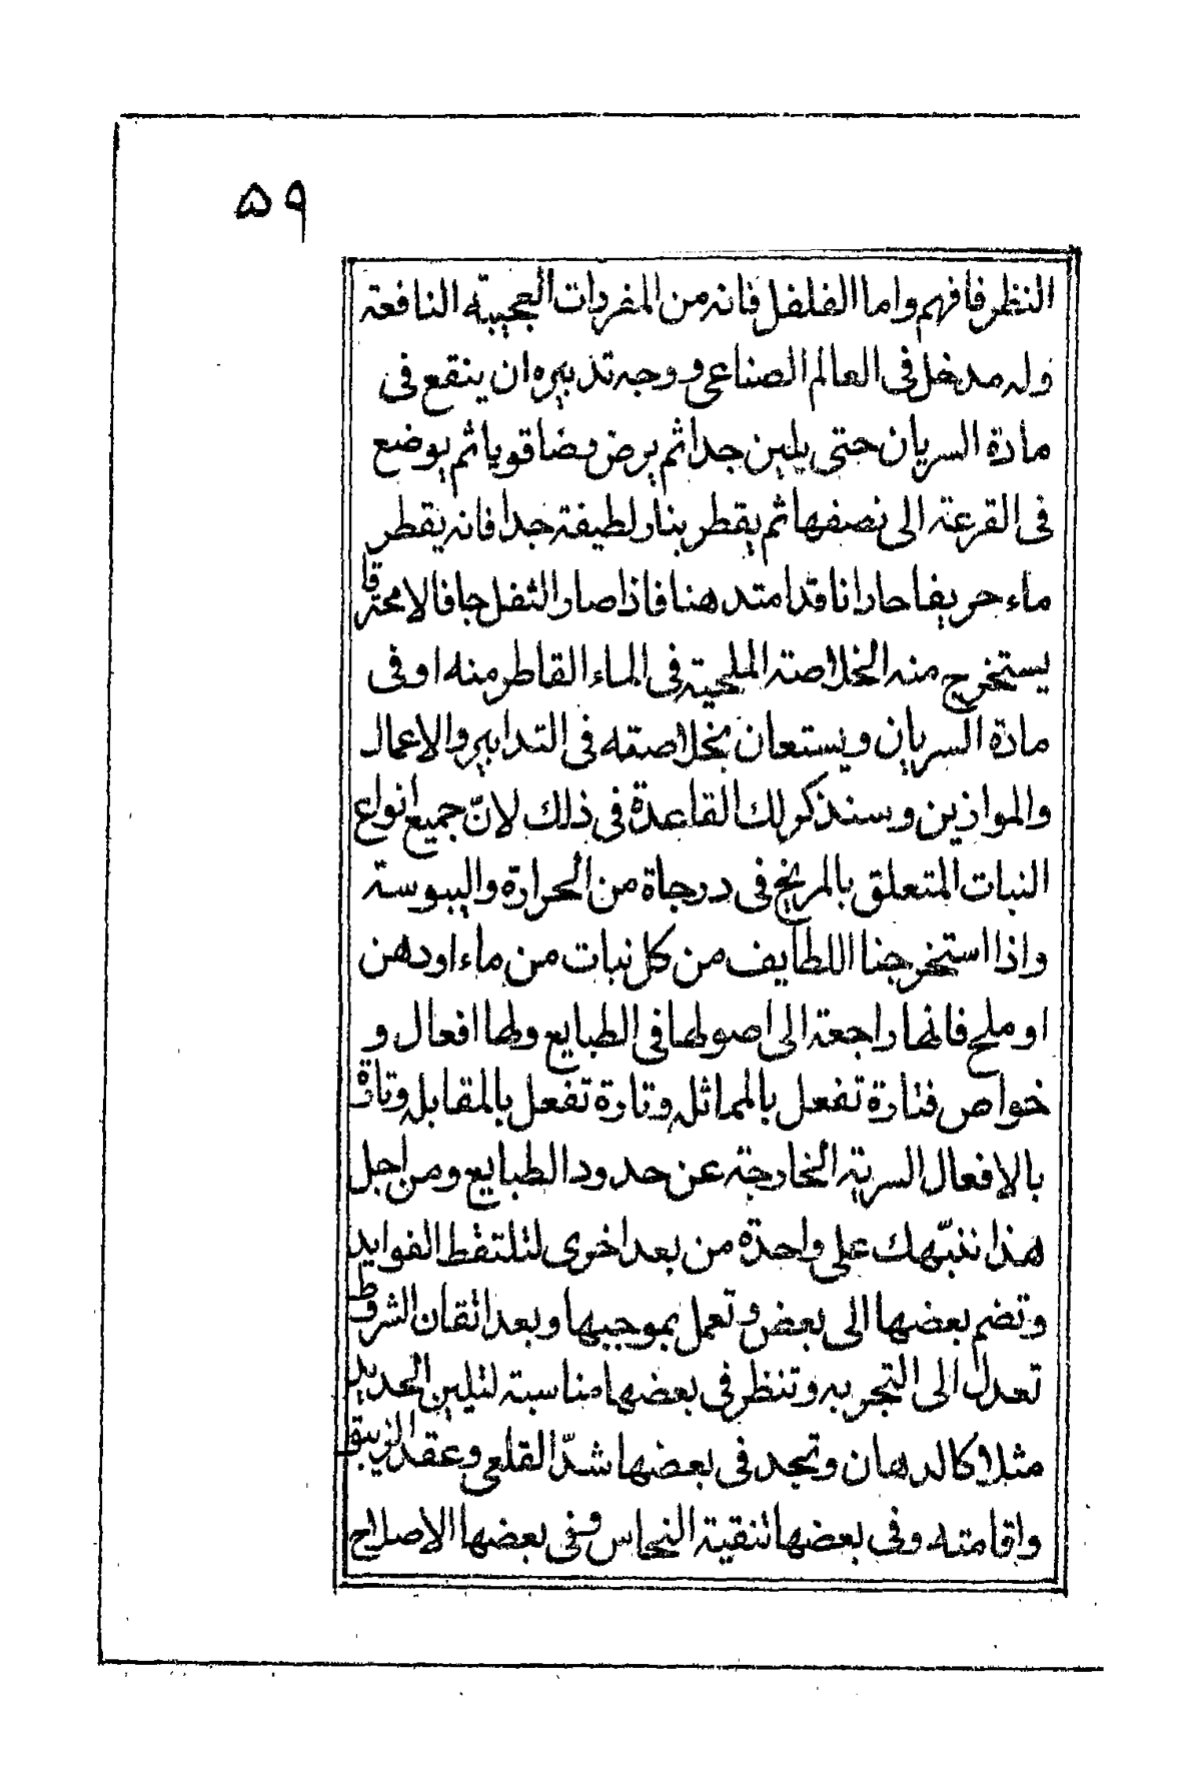 ۵۹
النظر فافهم واما الفلفل فانه من المفردات العجيبة النافعة
وله مدخل فى العالم الصناعى ووجه تدبيره ان ينقع فى
مادة السريان حتى يلين جدا ثم يرض رضا قويا ثم يوضع
فى القرعة الى نصفها ثم يقطر بنار لطيفة جدا فانه يقطر
ماء حريفا حارا نا قدا متد هنا فاذا صار الثفل جافا لا محترقا
يستخرج منه الخلاصة الملحية فى الماء القاطر منه او فى
مادة السريان ويستعان بخلاصته فى التدابير والاعمال
والموازين وسنذكر لك القاعدة فى ذلك لانّ جميع انواع
النبات المتعلق بالمريخ فى درجاة من الحرارة واليبوسة
واذا استخرجنا اللطايف من كل نبات من ماء او دهن
او ملح فانها راجعة الى اصولها فى الطبايع ولها افعال و
خواص فتارة تفعل بالمماثله وتارة تفعل بالمقابله وتارة
بالافعال السرية الخارجة عن حدود الطبايع ومن اجل
هذا ننبّهك على واحدة من بعد اخرى لتلتقط الفوايد
وتضم بعضها الى بعض وتعمل بموجبها وبعد اتقان الشرط
تعدل الى التجربه وتنظر فى بعضها مناسبة لتليين الحديد
مثلا كالدهان وتجد فى بعضها شدّ القلعى وعقد الزيبق
واقامته وفى بعضها تنقية النحاس وفى بعضها الاصلاح